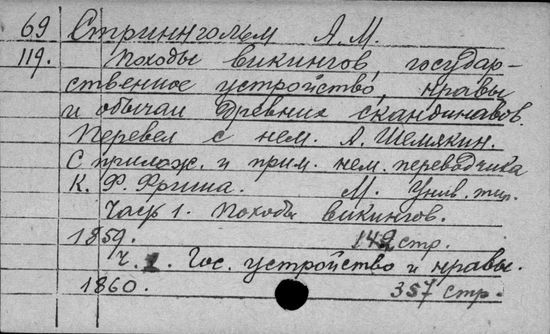 69 Стриннгольм А.М.
119. Походы викингов, государ-
ственное устройство, нравы
и обычаи древних скандинавов.
Перевел с нем. А. Шемякин.
С прилож. и прим. нем. переводчика
К. Ф. Фриша. М. Унив. тип.
Часть 1. Походы викингов.
1859. 142 стр.
Ч. 2. Гос. устройство и нравы.
1860. 357 стр.